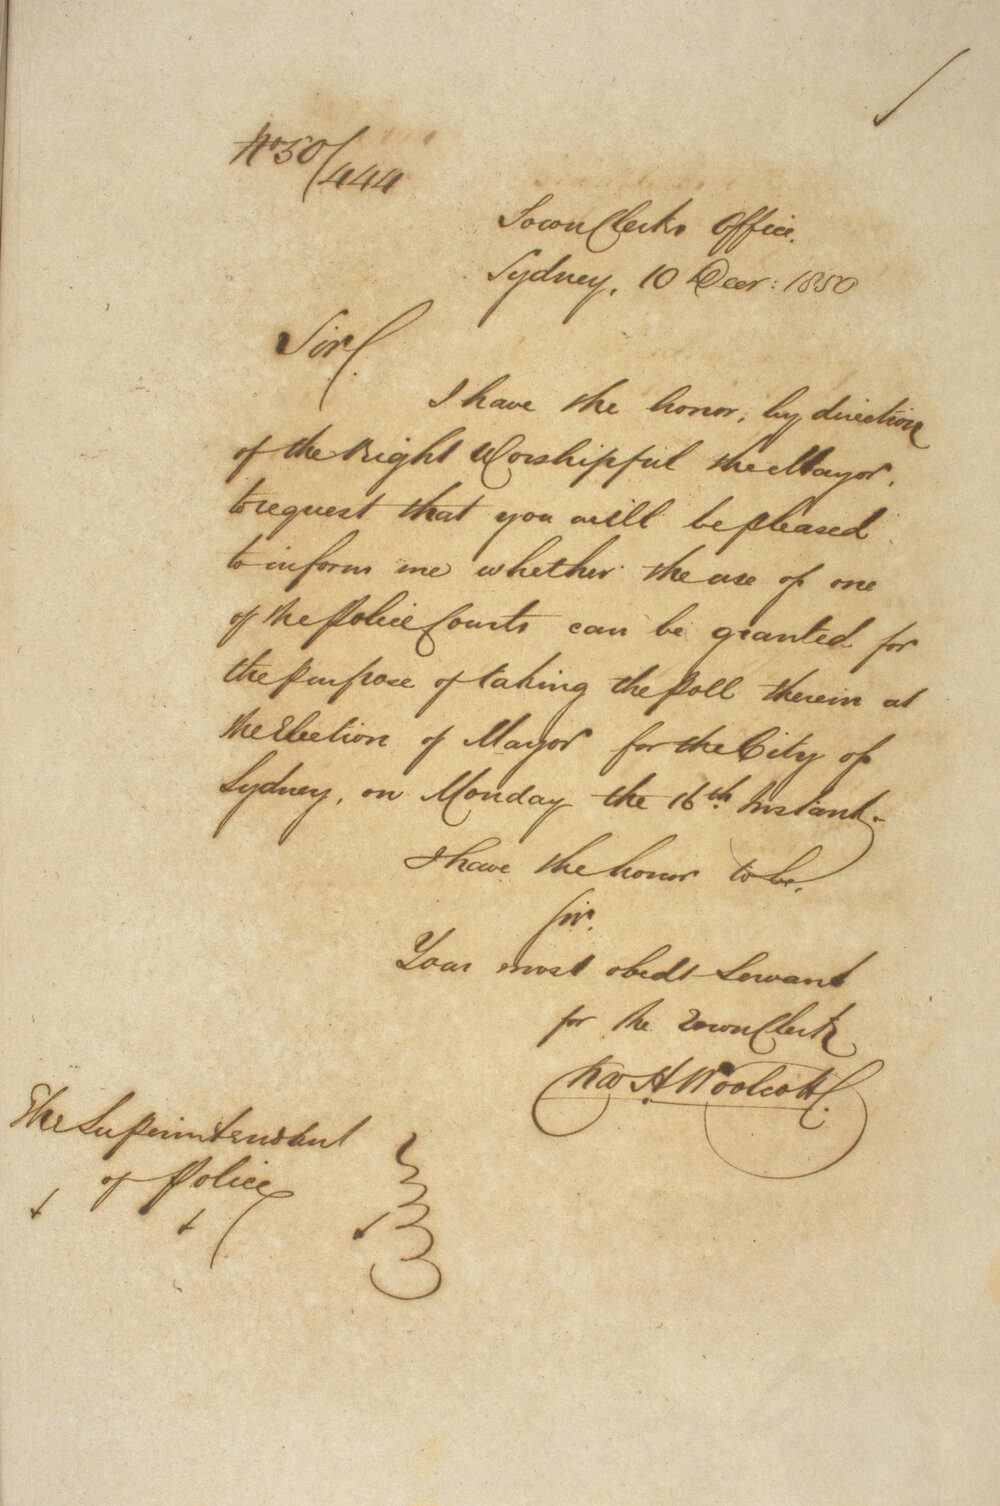 No 50/444
Town Clerks Office.
Sydney, 10 Decr: 1850
Sir,
I have the honor, by direction
of the Right Worshipful the Mayor,
to request that you will be pleased
to inform me whether the use of one
of the Police Courts can be granted for
the purpose of taking the Poll therein at
the Election of Mayor for the City of
Sydney, on Monday the 16th Instant.
I have the honor to be,
Sir.
Your most obedt Servant
for the Town Clerk
H. Woolcott
The Superintendent
of Police